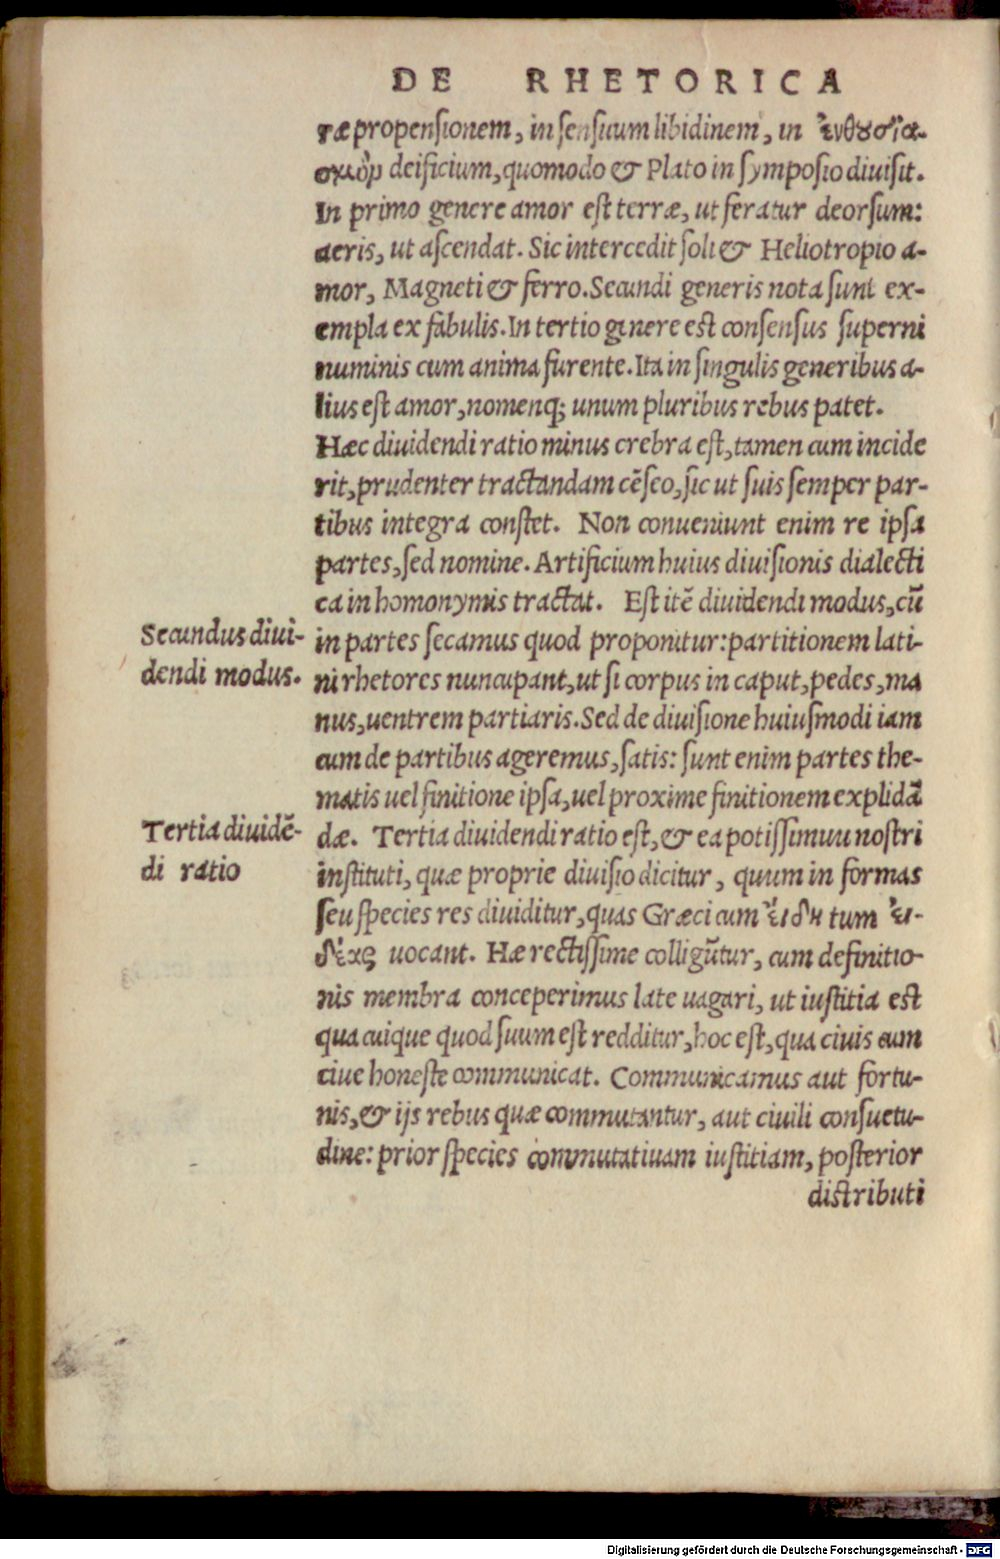 DE RHETORICA
ræ propensionem, in sensuum libidinem, in ἐνθουσια-
σμὸμ deificium, quomodo & Plato in symposio diuisit.
In primo genere amor est terræ, ut feratur deorsum:
aeris, ut ascendat. Sic intercedit soli & Heliotropio a-
mor, Magneti & ferro. Secundi generis nota sunt ex-
empla ex fabulis. In tertio genere est consensus superni
numinis cum anima furente. Ita in singulis generibus a-
lius est amor, nomenq; unum pluribus rebus patet.
Hæc diuidendi ratio minus crebra est, tamen cum incide
rit, prudenter tractandam cēseo, sic ut suis semper par-
tibus integra constet. Non conueniunt enim re ipsa
partes, sed nomine. Artificium huius diuisionis dialecti
ca in homonymis tractat. Est itē diuidendi modus, cū
Secundus diui-
dendi modus.
in partes secamus quod proponitur: partitionem lati-
ni rhetores nuncupant, ut si corpus in caput, pedes, ma
nus, uentrem partiaris. Sed de diuisione huiusmodi iam
cum de partibus ageremus, satis: sunt enim partes the-
matis uel finitione ipsa, uel proxime finitionem explicā
Tertia diuidē-
di ratio
dæ. Tertia diuidendi ratio est, & ea potissimuu nostri
instituti, quæ proprie diuisio dicitur, quum in formas
seu species res diuiditur, quas Græci cum ἔιδη tum ἐι-
δέας uocant. Hæ rectissime colligūtur, cum definitio-
nis membra conceperimus late uagari, ut iustitia est
qua cuique quod suum est redditur, hoc est, qua ciuis cum
ciue honeste communicat. Communicamus aut fortu-
nis, & ijs rebus quæ commutantur, aut ciuili consuetu-
dine: prior species commutatiuam iustitiam, posterior
distributi
Digitalisierung gefördert durch die Deutsche Forschungsgemeinschaft - DFG